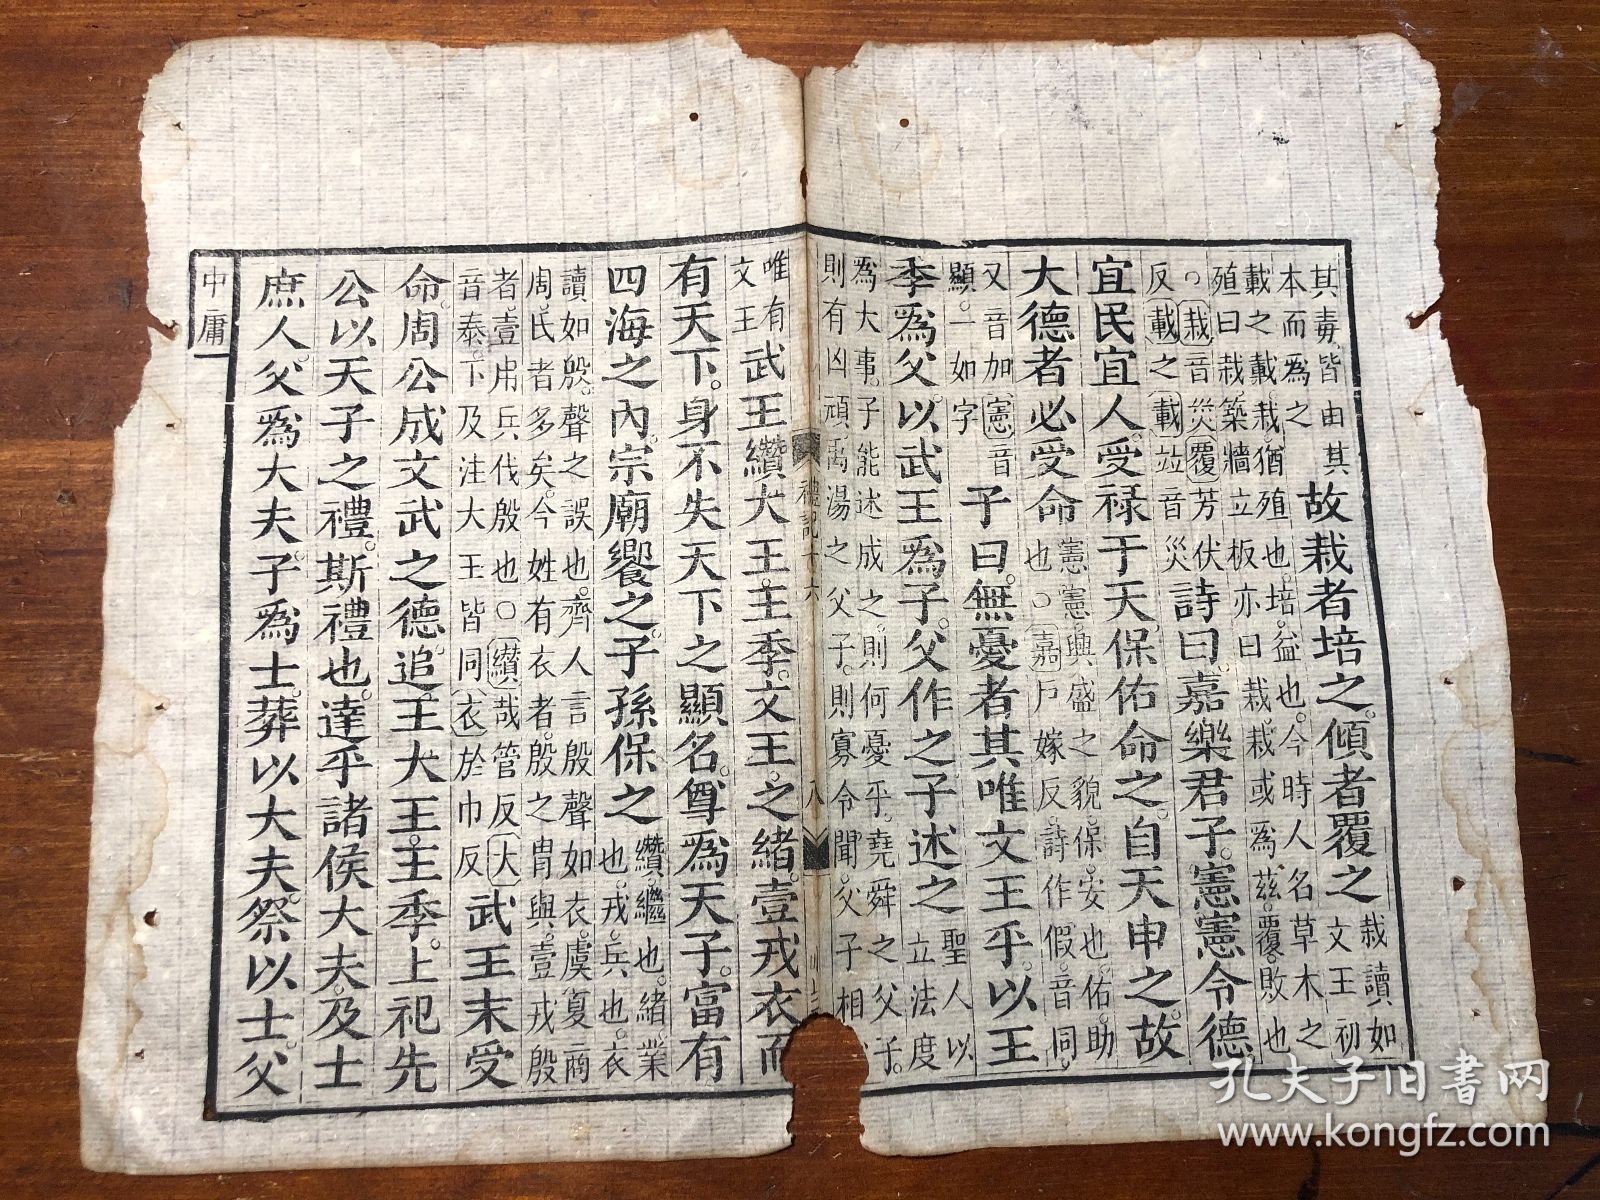 其毒皆由其
本而爲之
故栽者培之。傾者覆之
栽讀如
文王初
載之載。栽猶殖也。培益也。今時人名草木之
殖曰栽。築牆立板亦曰栽。栽或爲茲。覆敗也
〇栽音災覆芳伏
反載之載竝音災
詩曰。嘉樂君子。憲憲令德
宜民宜人。受祿于天。保佑命之。自天申之。故
大德者必受命
憲憲興盛之貌。保安也。佑助
也〇嘉戶嫁反。詩作假。音同。
又音加憲音
顯。一如字
子曰。無憂者其唯文王乎。以王
季爲父。以武王爲子。父作之子述之
聖人以
立法度
爲大事。子能述成之。則何憂乎。堯舜之父子。
則有凶頑。禹湯之父子。則寡令聞。父子相
禮記十六
八
唯有
文王
武王纘大王。王季。文王之緒。壹戎衣而
有天下。身不失天下之顯名。尊爲天子。富有
四海之內。宗廟饗之。子孫保之
纘繼也。緒業
也。戎兵也。衣
讀如殷。聲之誤也。齊人言殷聲如衣。虞夏商
周。氏者多矣。今姓有衣者。殷之冑與。壹戎殷
者。壹用兵伐殷也〇纘哉管反大
音泰。下及注大王皆同衣於巾反
武王末受
命。周公成文武之德。追王大王。王季。上祀先
公以天子之禮。斯禮也。達乎諸侯大夫。及士
庶人。父爲大夫。子爲士。葬以大夫。祭以士。父
中庸
孔夫子旧书网
www.kongfz.com